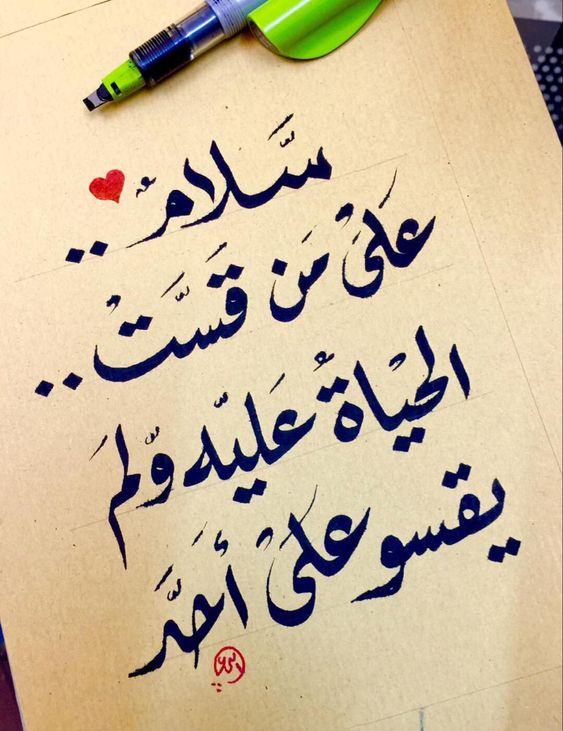 سَّلامٌ ..
عَلىَ مَن قَسَّتْ ..
الحْيَاةُ عَليّه وّلمَ
يقسو عَلىَ أحَدَّ